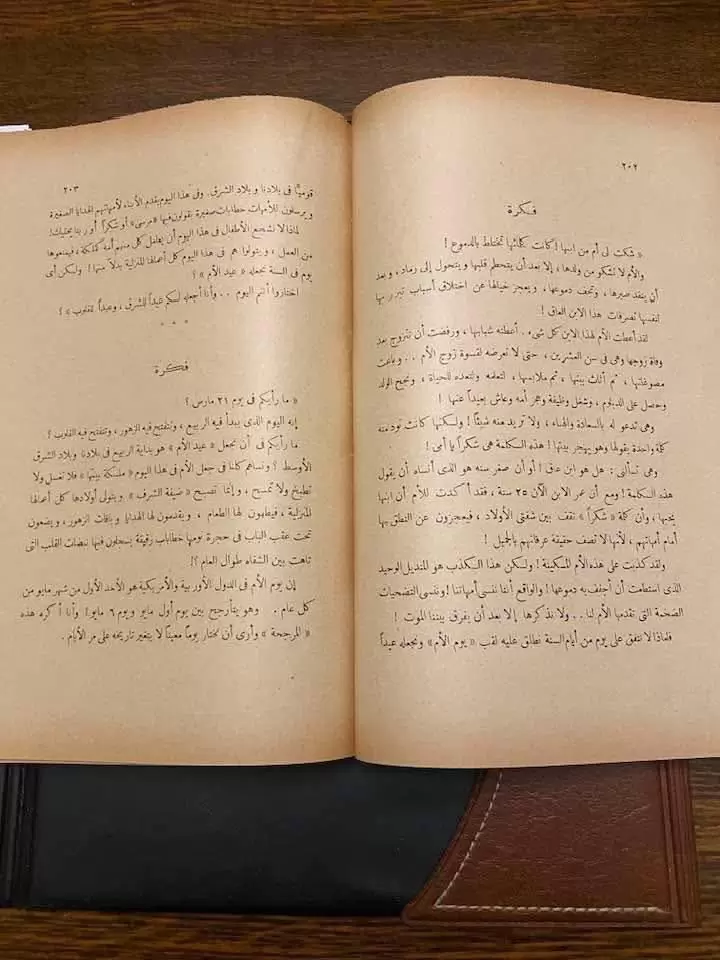 ٢٠٢
فكرة
« شكت لى أم من ابنها ! كانت كلماتها تختلط بالدموع !
والأم لا تشكو من ولدها ، إلا بعد أن يتحطم قلبها ويتحول إلى رماد ، وبعد
أن ينفد صبرها ، وتجف دموعها ، ويعجز خيالها عن اختلاق أسباب تبرر بها
لنفسها تصرفات هذا الابن العاق !
لقد أعطت الأم لهذا الابن كل شىء . أعطته شبابها ، ورفضت أن تتزوج بعد
وفاة زوجها وهى فى سن العشرين ، حتى لا تعرضه لقسوة زوج الأم . . وباعت
مصوغاتها ، ثم أثاث بيتها ، ثم ملابسها ، لتعلمه ولتعده للحياة ، ونجح الولد
وحصل على الدبلوم ، وشغل وظيفة وهجر أمه وعاش بعيداً عنها !
وهى تدعو له بالسعادة والهناء ، ولا تريد منه شيئاً ! ولكنها كانت تود منه
كلمة واحدة يقولها وهو يهجر بيتها ! هذه الكلمة هى شكراً يا أمى !
وهى تسألنى : هل هو ابن عاق ! أو أن صغر سنه هو الذى أنساه أن يقول
هذه الكلمة ! ومع أن عمر الابن الآن ٢٥ سنة ، فقد أكدت للأم أن ابنها
يحبها ، وأن كلمة « شكراً » تقف بين شفتى الأولاد ، فيعجزون عن النطق بها
أمام أمهاتهم ، لأنها لا تصف حقيقة عرفانهم بالجميل !
ولقد كذبت على هذه الأم المسكينة ! ولكن هذا الكذب هو المنديل الوحيد
الذى استطعت أن أجفف به دموعها ! والواقع أننا ننسى أمهاتنا ! وننسى التضحيات
الضخمة التى تقدمها الأم لنا . . ولا نذكرها إلا بعد أن يفرق بيننا الموت !
فلماذا لا نتفق على يوم من أيام السنة نطلق عليه لقب « يوم الأم » ونجعله عيداً
٢٠٣
قومياً فى بلادنا وبلاد الشرق . وفى هذا اليوم يقدم الأبناء لأمهاتهم الهدايا الصغيرة
ويرسلون للأمهات خطابات صغيرة يقولون فيها « مرسى » أو شكراً ! أو ربنا يخليك !
لماذا لا نشجع الأطفال فى هذا اليوم أن يعامل كل منهم أمه كملكة ، فيمنعوها
من العمل ، ويتولوا هم فى هذا اليوم كل أعمالها المنزلية بدلاً منها ! ولكن أى
يوم فى السنة نجعله « عيد الأم » ؟
اختاروا أنتم اليوم . . وأنا أجعله لكم عيداً للشرق ، وعيداً للقلوب » ؟
* * *
فكرة
« ما رأيكم فى يوم ٢١ مارس ؟
إنه اليوم الذى يبدأ فيه الربيع ، وتتفتح فيه الزهور ، وتتفتح فيه القلوب ؟
ما رأيكم فى أن نجعل « عيد الأم » هو بداية الربيع فى بلادنا وبلاد الشرق
الأوسط ؟ ونساهم كلنا فى جعل الأم فى هذا اليوم « ملكة بيتها » فلا تغسل ولا
تطبخ ولا تمسح ، وإنما تصبح « ضيفة الشرف » . ويتولى أولادها كل أعمالها
المنزلية ، فيطهون لها الطعام ، ويقدمون لها الهدايا وباقات الزهور ، ويضعون
تحت عقب الباب فى حجرة نومها خطابات رقيقة يسجلون فيها نبضات القلب التى
تاهت بين الشفاه طوال العام ؟!
إن يوم الأم فى الدول الأوربية والأمريكية هو الأحد الأول من شهر مايو من
كل عام . وهو يتأرجح بين يوم أول مايو ويوم ٦ مايو ! وأنا أكره هذه
« المرجحة » وأرى أن نختار يوماً معيناً لا يتغير تاريخه على مر الأيام .